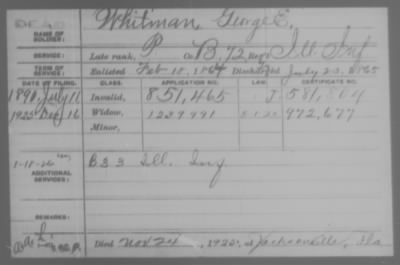 NAME OF SOLDIER: Whitman, George E.
SERVICE: Late rank, P Co. B, 72 Reg't Ill. Inf
TERM OF SERVICE: Enlisted Feb 18, 1864 Discharged July 23, 1865
DATE OF FILING. CLASS. APPLICATION NO. LAW. CERTIFICATE NO.
1890, July 11 Invalid, 851,465 J 581,864
1925 Dec 16 Widow, 1239991 5-1-20 972,677
Minor,
1-18-26
ADDITIONAL SERVICES: B 33 Ill. Inf
REMARKS:
Died Nov 24, 1925, at Jacksonville, Fla